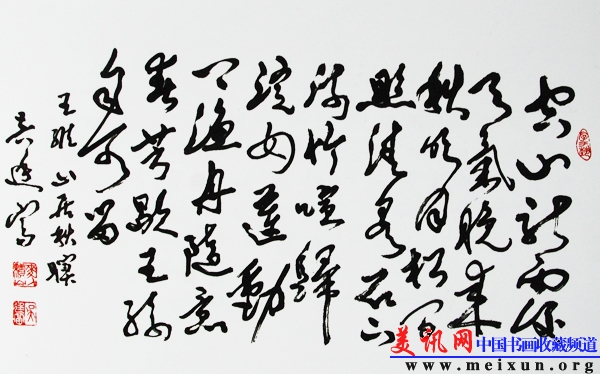 空山新雨後
天氣晚来
秋明月松间
照清泉石上
流竹喧歸
浣女蓮動
下漁舟隨意
春芳歇王孫
自可留
王維山居秋暝
美讯网 中国书画收藏频道
www.meixun.org